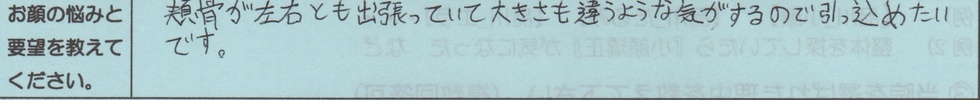 お顔の悩みと
要望を教えて
ください。
頬骨が左右とも出張っていて大きさも違うような気がするので引っ込めたい
です。